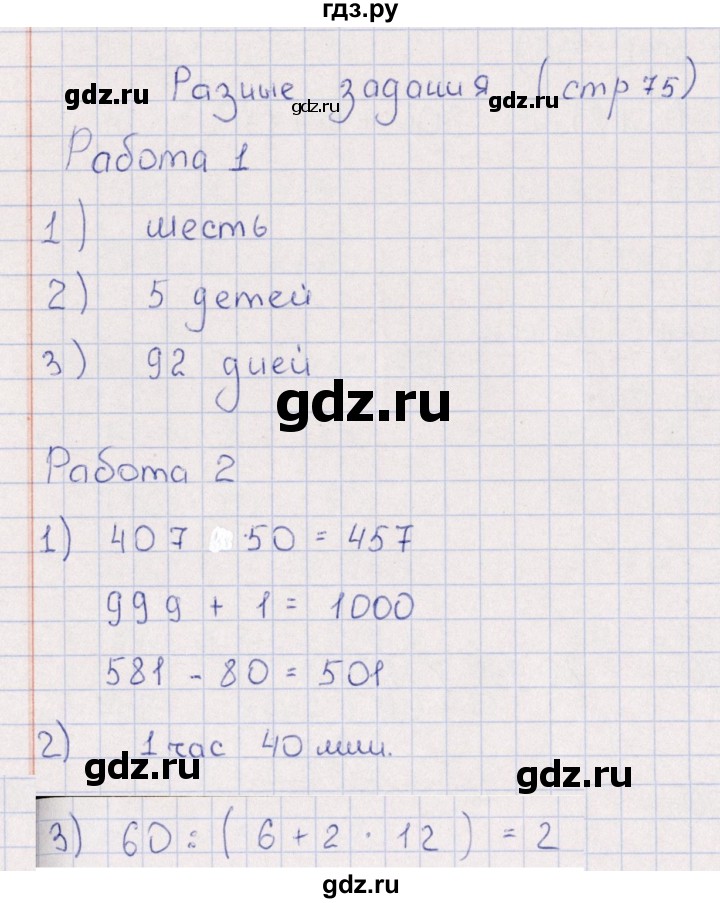 гдз.ру
gdz.ru Разные gdz.ru задания gdz.ru (стр 75)
Работа 1
1) шесть
2) 5 детей
3) 92 дней
gdz.ru
Работа 2
1) 407 50 = 457
999 + 1 = 1000
581 - 80 = 501
2) 1 час 40 мин.
gdz.ru gdz.ru
3) 60 : ( 6 + 2 · 12 ) = 2
gdz.ru